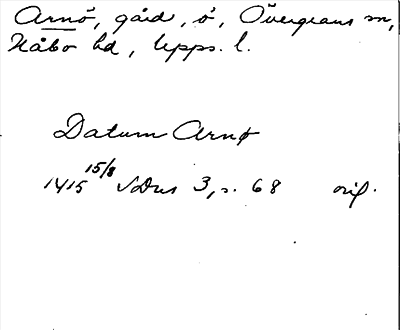 Arnö, gård, ö, Övergrans sn,
Håbo hd, Upps. l.
Datum Arnø
1415 15/8 SDns 3, s. 68 orig.